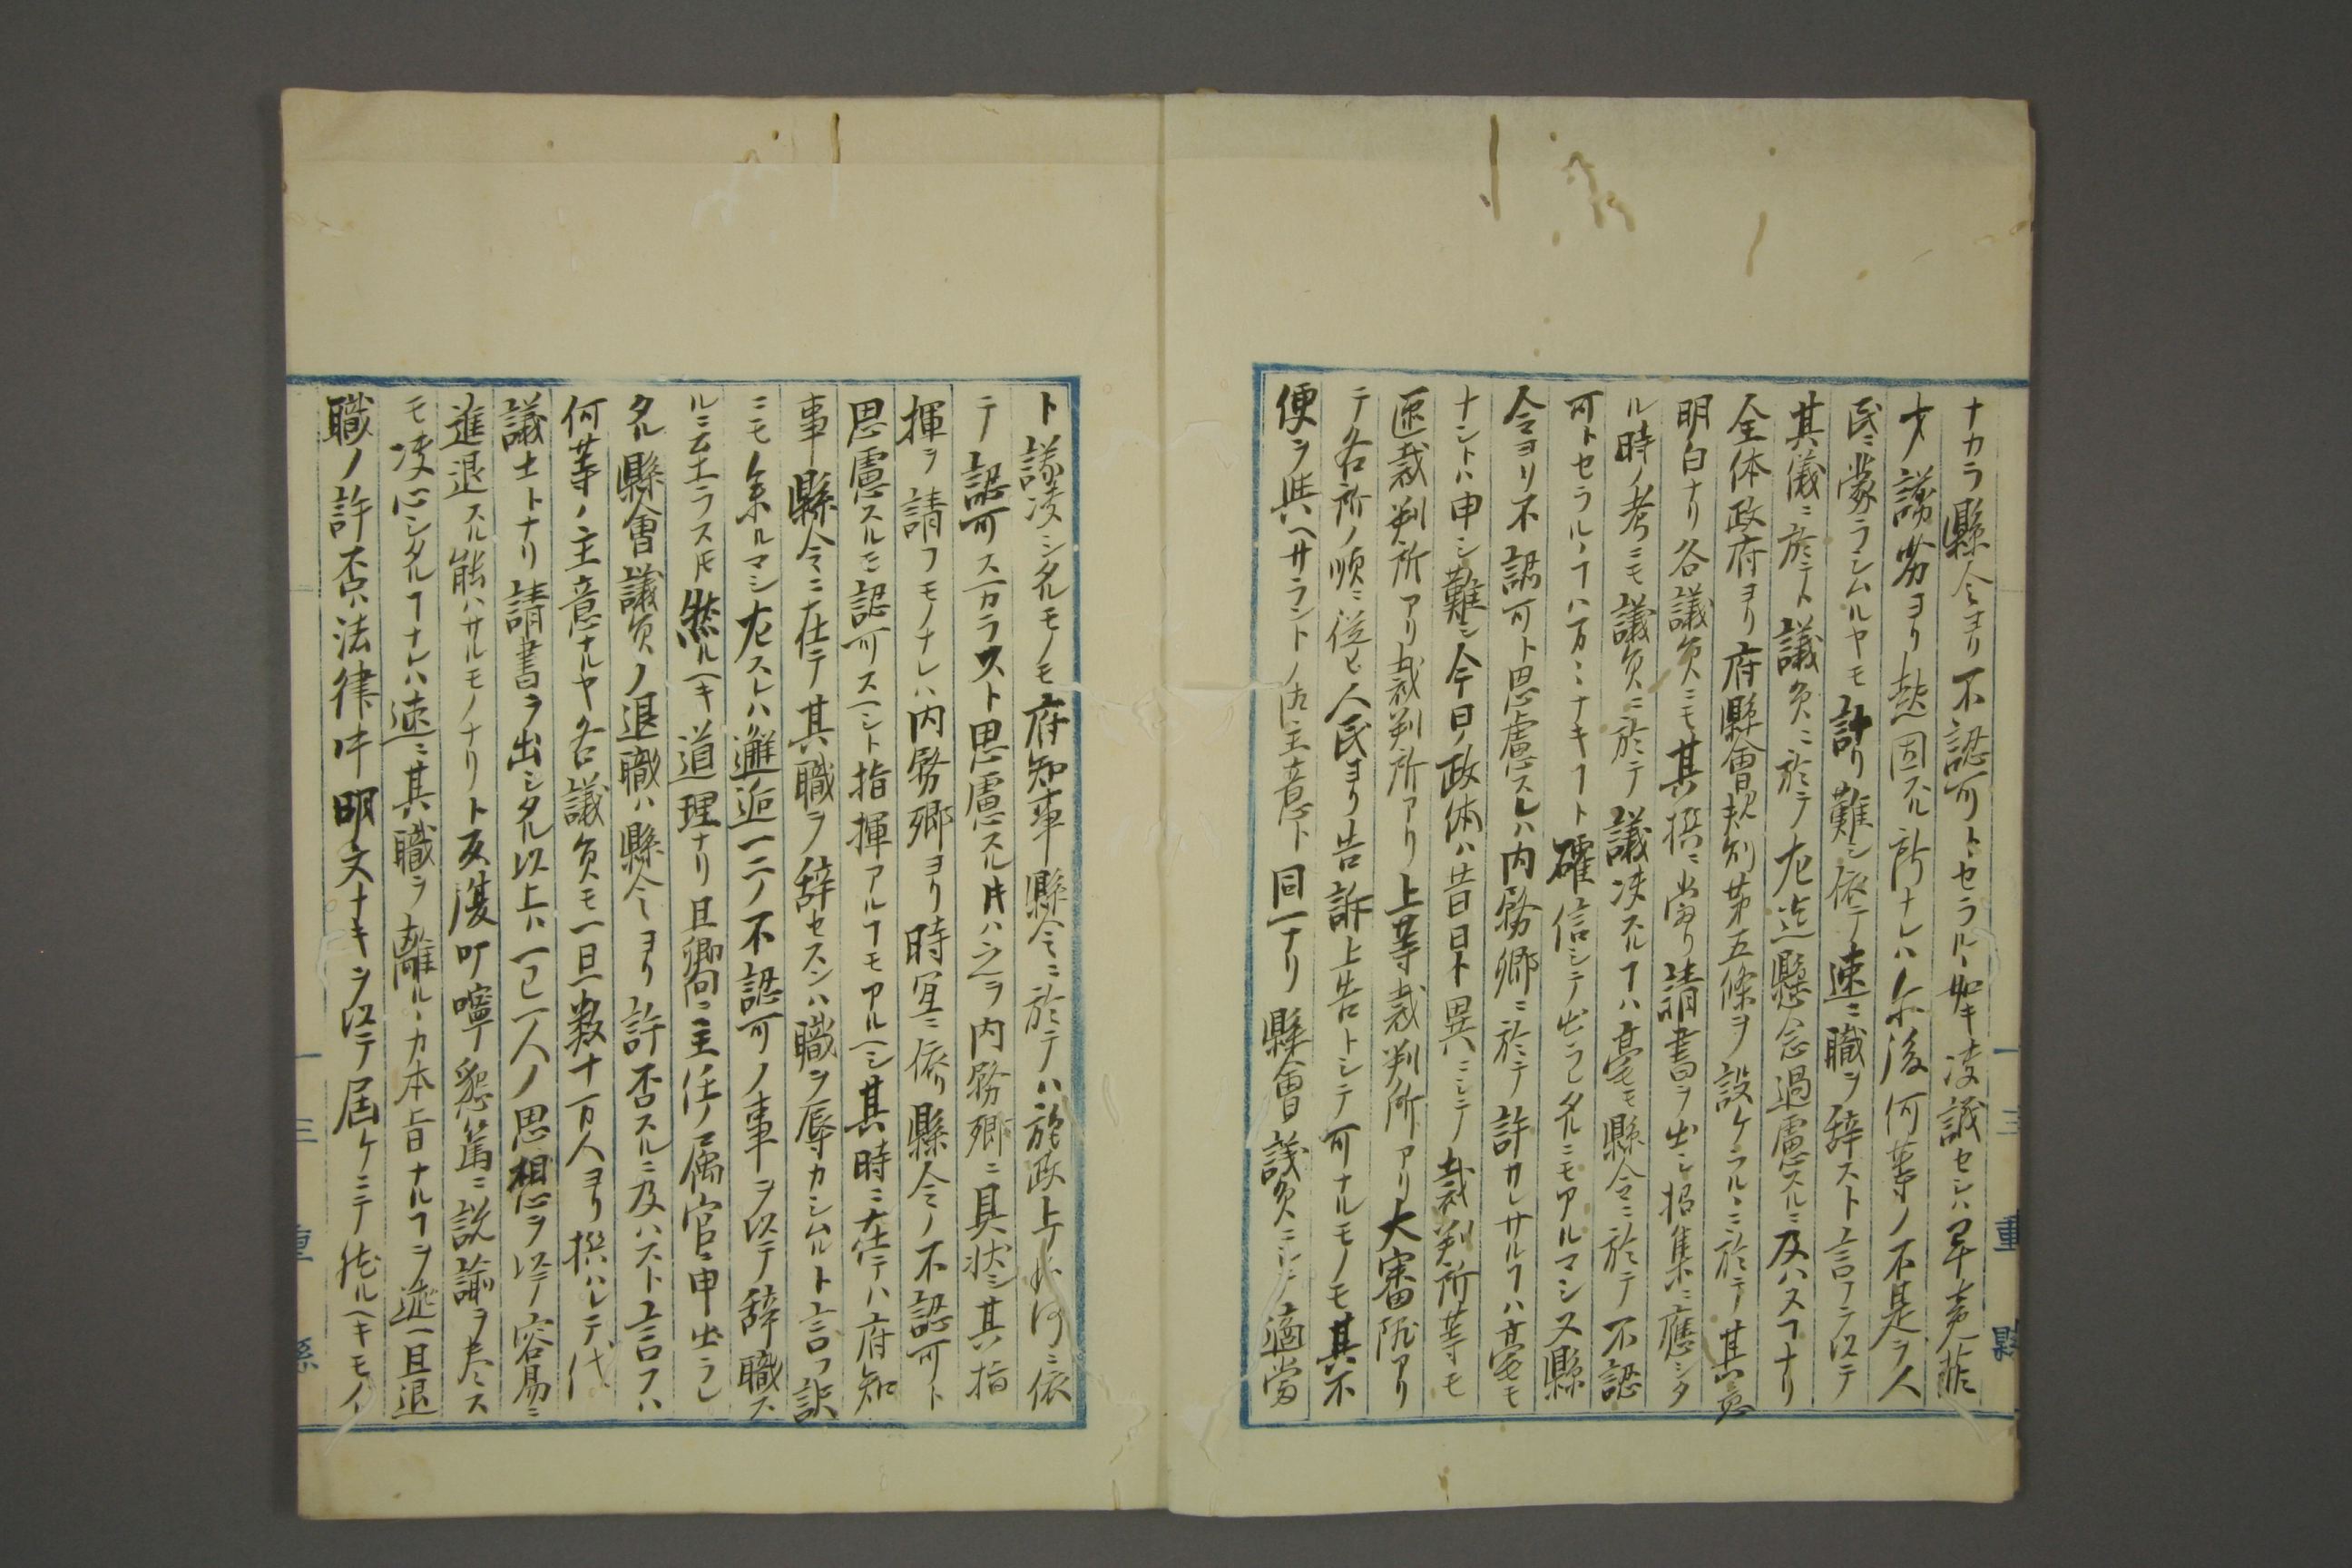 ナカラ縣令ヨリ不認可トセラルヽ如キ决議セシハ
才謭劣ヨリ起因スル所ナレハ尓後何等ノ不是ヲ人
民ニ蒙ラシムルヤモ計リ難シ依テ速ニ職ヲ辞スト言フテ以テ
其儀ニ於テト議員ニ於テ左迄懸念過慮スルニ及ハスヿナリ
全体政府ヨリ府縣會規則第五條ヲ設ケラルヽニ於テ其意
明白ナリ各議員ニモ其撰ニ當リ請書ヲ出シ招集ニ應シタ
ル時ノ考ニモ議員ニ於テ議决スルヿハ毫モ縣令ニ於テ不認
可トセラルヽヿハ万々ナキヿト確信シテ出ラレタルニモアルマシ又縣
令ヨリ不認可ト思慮スレハ内務卿ニ於テ許カレサルヿハ毫モ
ナシトハ申シ難シ今日ノ政体ハ昔日ト異ニシテ裁判所等モ
区裁判所アリ裁判所アリ上等裁判所アリ大審院アリ
テ各所ノ順ニ從ヒ人民ヨリ告訴上告トシテ可ナルモノモ其不
便ヲ與ヘサラントノ御主意ト同一ナリ縣會議員ニシテ適當
ト議决シタルモノモ府知事縣令ニ於テハ施政上如何ニ依
テ認可スヘカラスト思慮スル片ハ之ヲ内務卿ニ具状シ其指
揮ヲ請フモノナレハ内務卿ヨリ時宜ニ依リ縣令ノ不認可ト
思慮スルモ認可スヘシト指揮アルヿモアルヘシ其時ニ在テハ府知
事縣令ニ在テ其職ヲ辞セスンハ職ヲ辱カシムルト言フ訳
ニモ参ルマシ左スレハ邂逅一二ノ不認可ノ事ヲ以テ辞職ス
ルニ至ラス𪜈然ルヘキ道理ナリ且郷向ニ主任ノ属官ニ申出ラレ
タル縣會議員ノ退職ハ縣令ヨリ許否スルニ及ハスト言フハ
何等ノ主意ナルヤ各議員モ一旦数十万人ヨリ撰ハレテ代
議士トナリ請書ヲ出シタル以上ハ一已一人ノ思想ヲ以テ容易ニ
進退スル能ハサルモノナリト反覆叮嚀懇篤ニ説諭ヲ尽ス
モ决心シタルヿナレハ速ニ其職ヲ離ルヽカ本旨ナルヿヲ述一旦退
職ノ許否ハ法律中明文ナキヲ以テ届ケニテ然ルヘキモノ
三重縣
三重縣